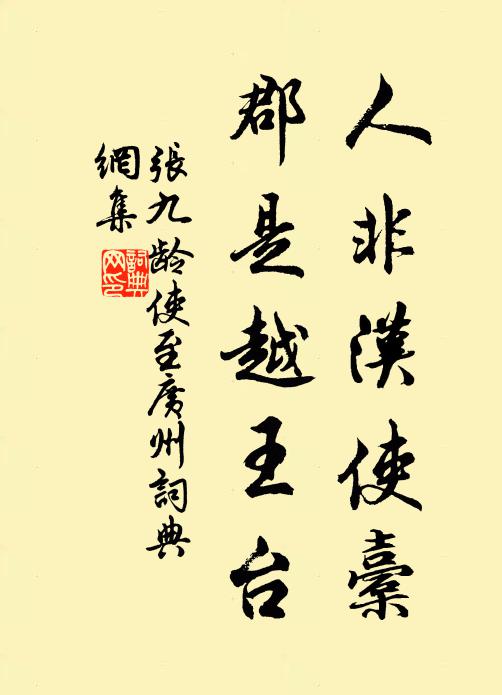 人非漢使橐
郡是越王台
張九龄使至廣州詞典
網集
詞典
网印